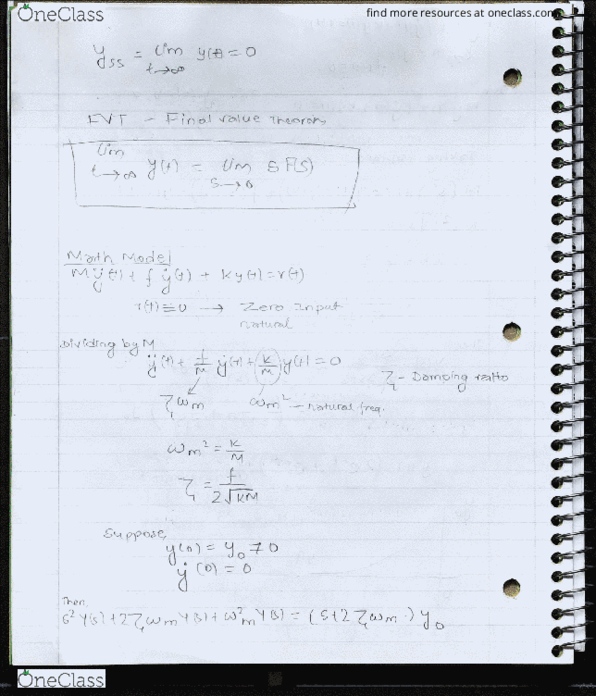 OneClass
find more resources at oneclass.com
y_dss = lim_{t→∞} y(t) = 0
FVT - Final value theorem
lim_{t→∞} y(t) = lim_{s→0} s F(s)
Math Model
M ÿ(t) + f ẏ(t) + k y(t) = r(t)
r(t) ≡ 0 → Zero Input
natural
Dividing by M
ÿ(t) + f/M ẏ(t) + (k/M) y(t) = 0
ζ - Damping ratio
ζ ω_m ω_m² - natural freq.
ω_m² = k/M
ζ = f/2√KM
Suppose,
y(0) = y_0 ≠ 0
ẏ(0) = 0
Then,
s² Y(s) + 2ζω_m Y(s) + ω²_m Y(s) = (s + 2ζω_m) y_0
OneClass